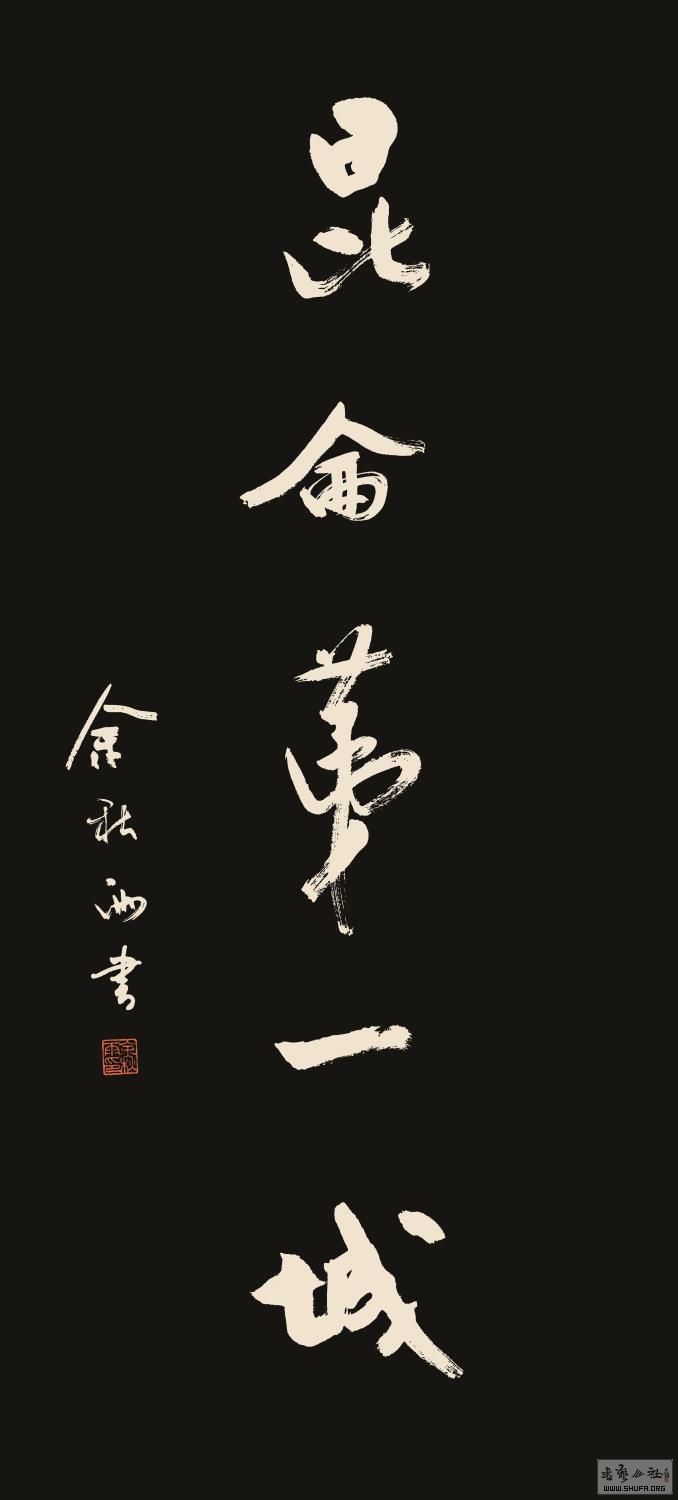 昆侖第一城
余秋雨書
余秋雨印
書藝公社
WWW.SHUFA.ORG